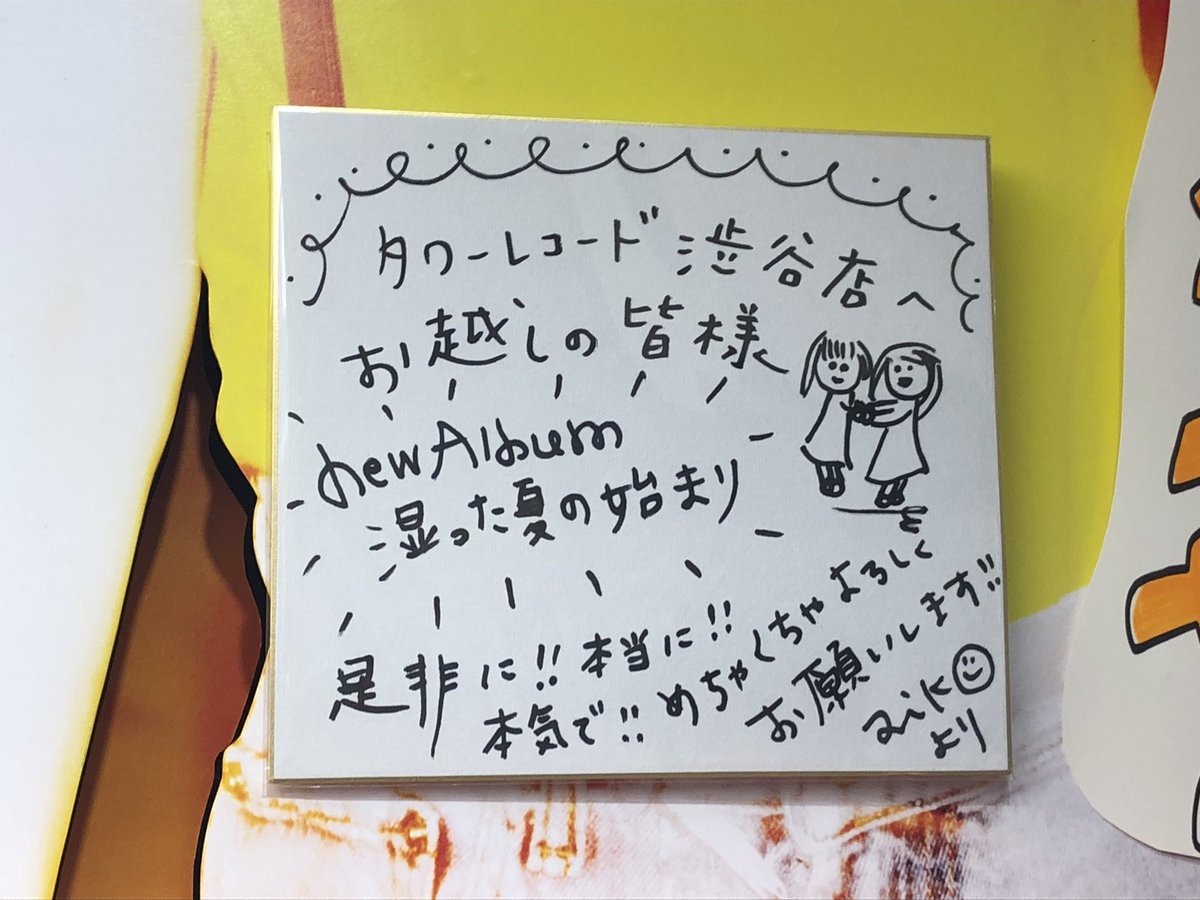 タワーレコード渋谷店へ
お越しの皆様
New Album
湿った夏の始まり
是非に!!本当に!!
本気で!!めちゃくちゃよろしく
お願いします!!
aiko
より